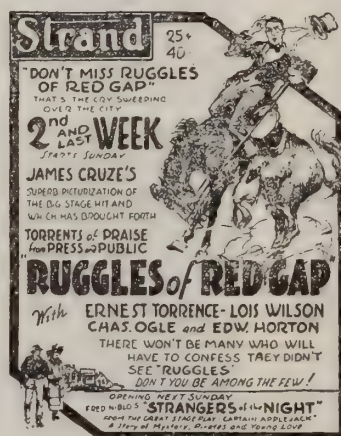 Strand
25¢
40¢
"DON'T MISS RUGGLES
OF RED GAP"
THAT'S THE CRY SWEEPING
OVER THE CITY
2nd AND LAST WEEK
STARTS SUNDAY
JAMES CRUZE'S
SUPERB PICTURIZATION OF
THE BIG STAGE HIT AND
WHICH HAS BROUGHT FORTH
TORRENTS of PRAISE
from PRESS and PUBLIC
"RUGGLES of RED GAP"
With ERNEST TORRENCE - LOIS WILSON
CHAS. OGLE and EDW. HORTON
THERE WON'T BE MANY WHO WILL
HAVE TO CONFESS THEY DIDN'T
SEE "RUGGLES"
DON'T YOU BE AMONG THE FEW!
OPENING NEXT SUNDAY
FRED NIBLO'S "STRANGERS of the NIGHT"
FROM THE GREAT STAGE PLAY "CAPTAIN APPLEJACK"
A Story of Mystery, Pirates and Young Love